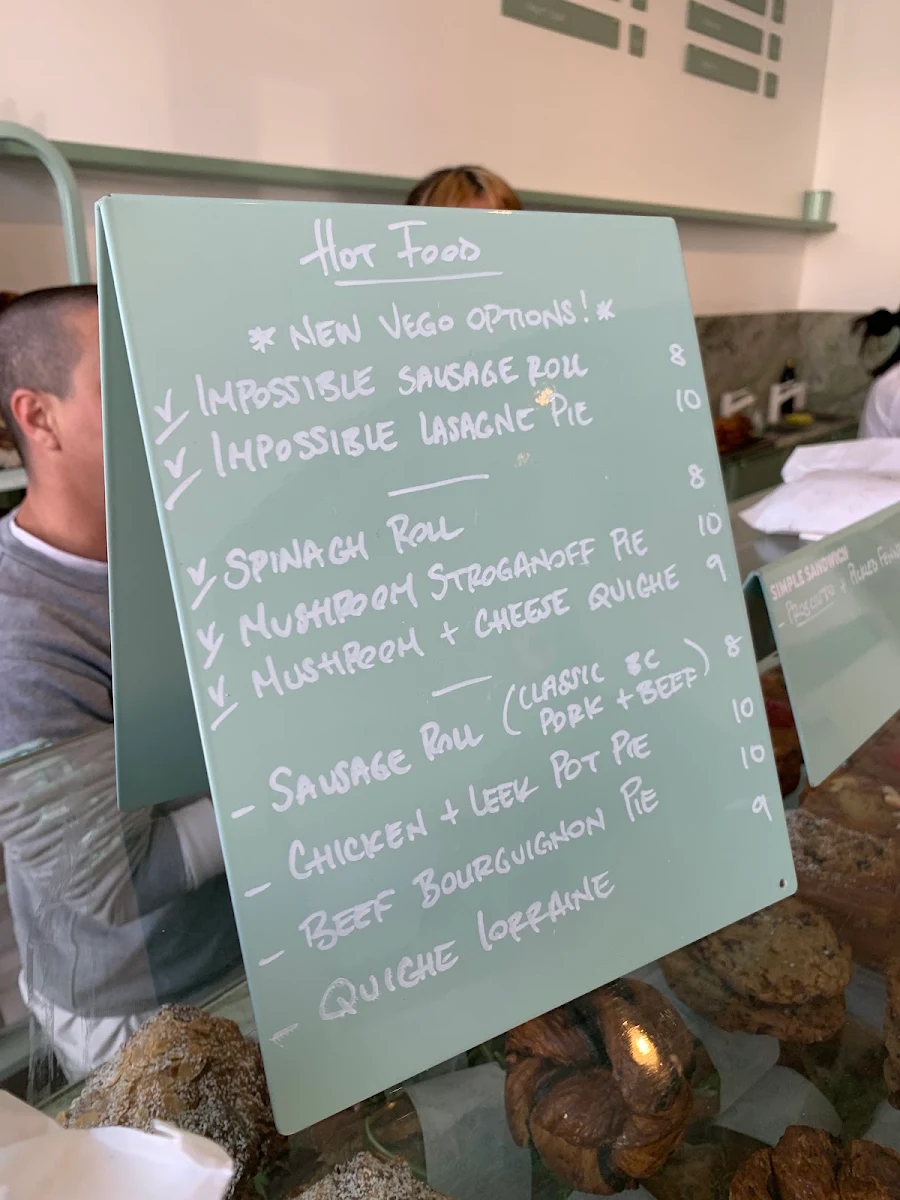 Hot Food
* NEW VEGO OPTIONS! *
V IMPOSSIBLE SAUSAGE ROLL 8
V IMPOSSIBLE LASAGNE PIE 10
V SPINACH ROLL 8
V MUSHROOM STROGANOFF PIE 10
V MUSHROOM + CHEESE QUICHE 9
- SAUSAGE ROLL (CLASSIC BC PORK + BEEF) 8
- CHICKEN + LEEK POT PIE 10
- BEEF BOURGUIGNON PIE 10
- QUICHE LORRAINE 9
SIMPLE SANDWICH
- PROSCIUTTO + PICKED